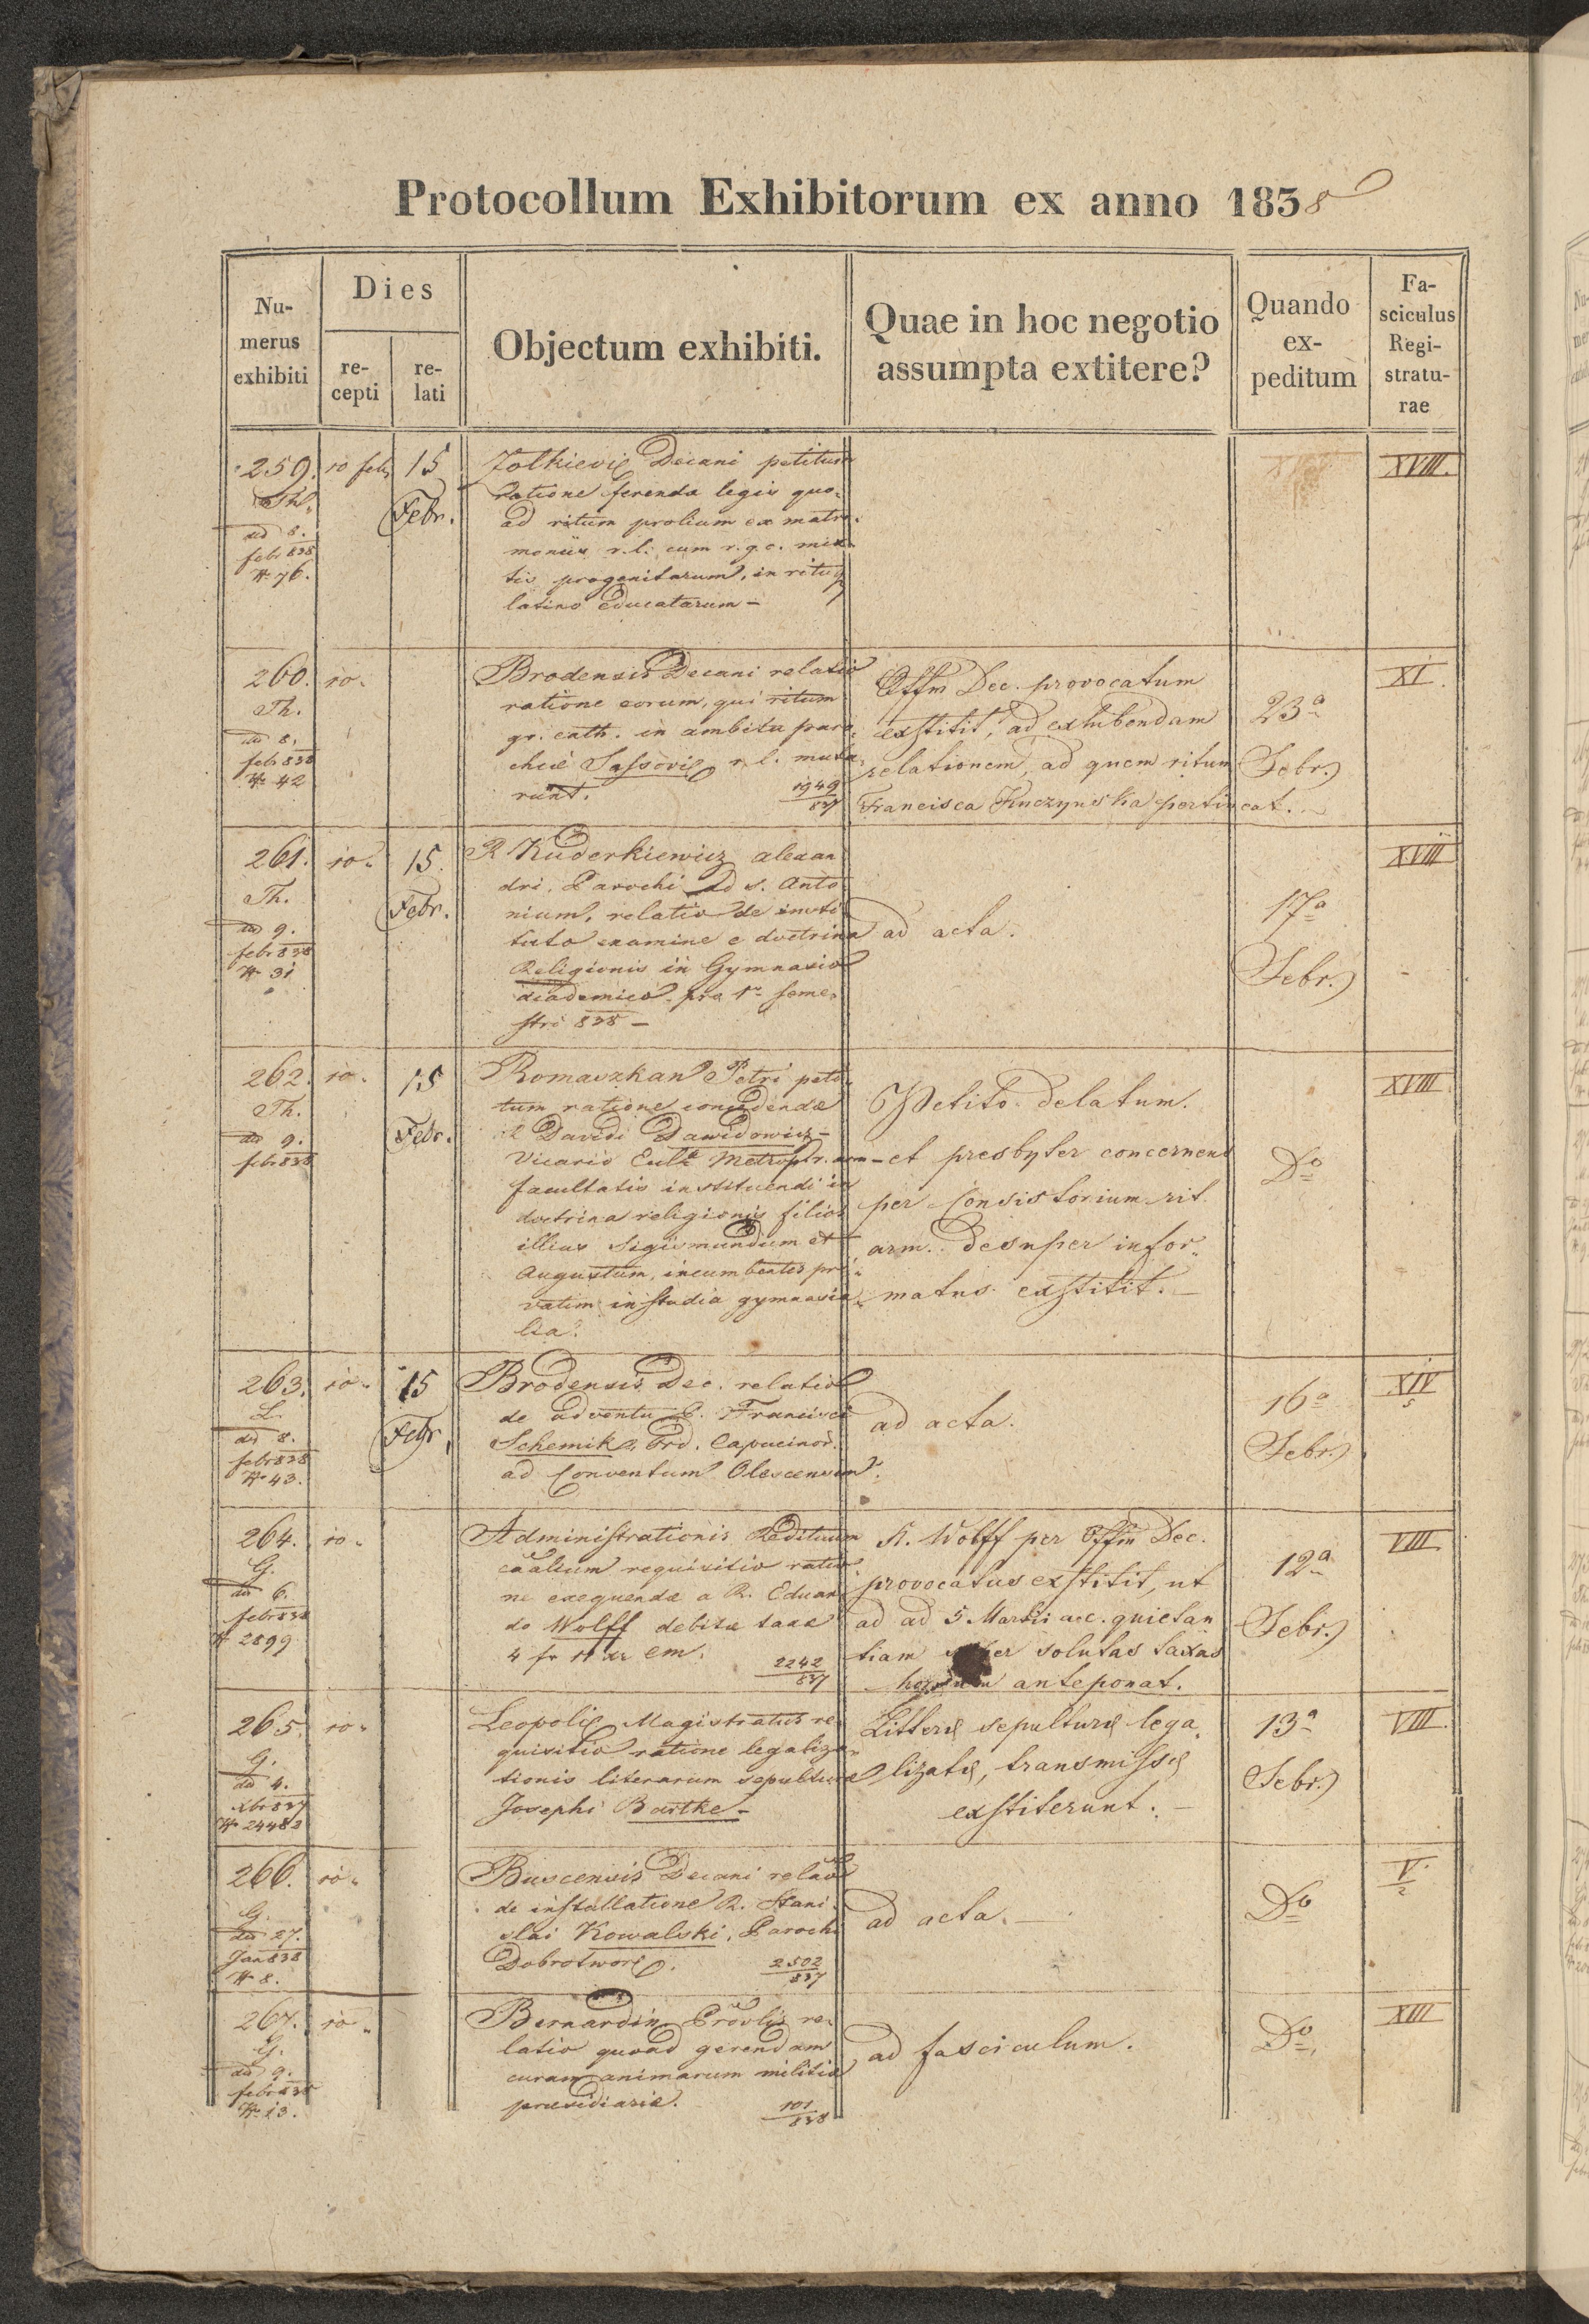 Protocollum Exhibitorum ex anno 1838
Nu-
merus
exhibiti
Dies
re-
cepti
re-
lati
Objectum exhibiti.
Quae in hoc negotio
assumpta extitere?
Quando
ex-
peditum
Fa-
sciculus
Regi-
stratu-
rae
259. 10 feb. 15 Febr.
Th.
dd 8.
febr 838
N 76.
Zolkievię Decani petitum
ratione ferendæ legis quo-
ad ritum prolium ex matri-
moniis r. l. cum r. g. c. mix-
tis progenitarum, in ritu
latino educatarum –
XVIII.
260. 10.
Th.
dd 8.
febr 838
N 42
Brodensis Decani relatio
ratione eorum, qui ritum
gr. cath. in ambitu paro-
chiæ Sassovię r. l. muta-
runt.
1949
837
Offm Dec. provocatum
exstitit, ad exhibendam
relationem, ad quem ritum
Francisca Kuczynska pertineat.
23a
Febr.
XI.
261. 10. 15. Febr.
Th.
dd 9.
febr 838
N 31
R. Kuderkiewicz Alexan
dri, Parochi ad S. Anto
nium, relatio de insti
tuto examine e doctrina
Religionis in Gymnasio
academico pro 1o seme-
stri 838 –
ad acta.
17a
Febr.
XVIII
262. 10. 15 Febr.
Th.
dd 9.
febr 838
Romaszkan Petri peti-
tum ratione concedendæ
R. Davidi Dawidowicz –
Vicario Eccl. Metropol. r. arm –
facultatis instituendi in
doctrina religionis filios
illius Sigismundum et
Augustum, incumbentes pri-
vatim in studia gymnasia-
lia.
Petito delatum.
et presbyter concernens
per Consistorium rit.
arm. desuper infor-
matus exstitit. –
Do
XVIII
263. 10. 15 Febr.
L.
dd 8.
febr 838
N 43.
Brodensis Dec. relatio
de adventu P. Francisci
Schemik, Ord. Capucinor.
ad Conventum Olescensem.
ad acta.
16a
Febr.
XIV
5
264. 10.
G.
dd 6.
febr 838
N 2899
Administrationis Redituum
caalium requisitio ratio
ne exequendæ a R. Eduar
do Wolff debitæ taxæ
4 fr 11 xr CM.
2242
837
R. Wolff per Offm Dec.
provocatus exstitit, ut
ad ad 5 Martii a. c. quietan
tiam solutas taxas
anteponat.
12a
Febr.
VIII
265. 10.
G.
dd 4.
xbr 837
N 24482
Leopolię Magistratus re-
quisitio ratione legaliza-
tionis literarum sepulturæ
Josephi Bartke –
Litteræ sepulturę lega-
lizatę, transmissę
exstiterunt. –
13a
Febr.
VIII.
266. 10.
G.
dd 27.
Jan 838
N 8.
Buscensis Decani relatio
de installatione R. Stani
slai Kowalski, Parochi
Dobrotworę.
2502
837
ad acta. –
Do
V
2
267. 10.
G.
dd 9.
febr 838
N 13.
Bernardin. Provlis re-
latio quoad gerendam
curam animarum militiæ
præsidiariæ.
101
838
ad fasciculum.
Do
XIII